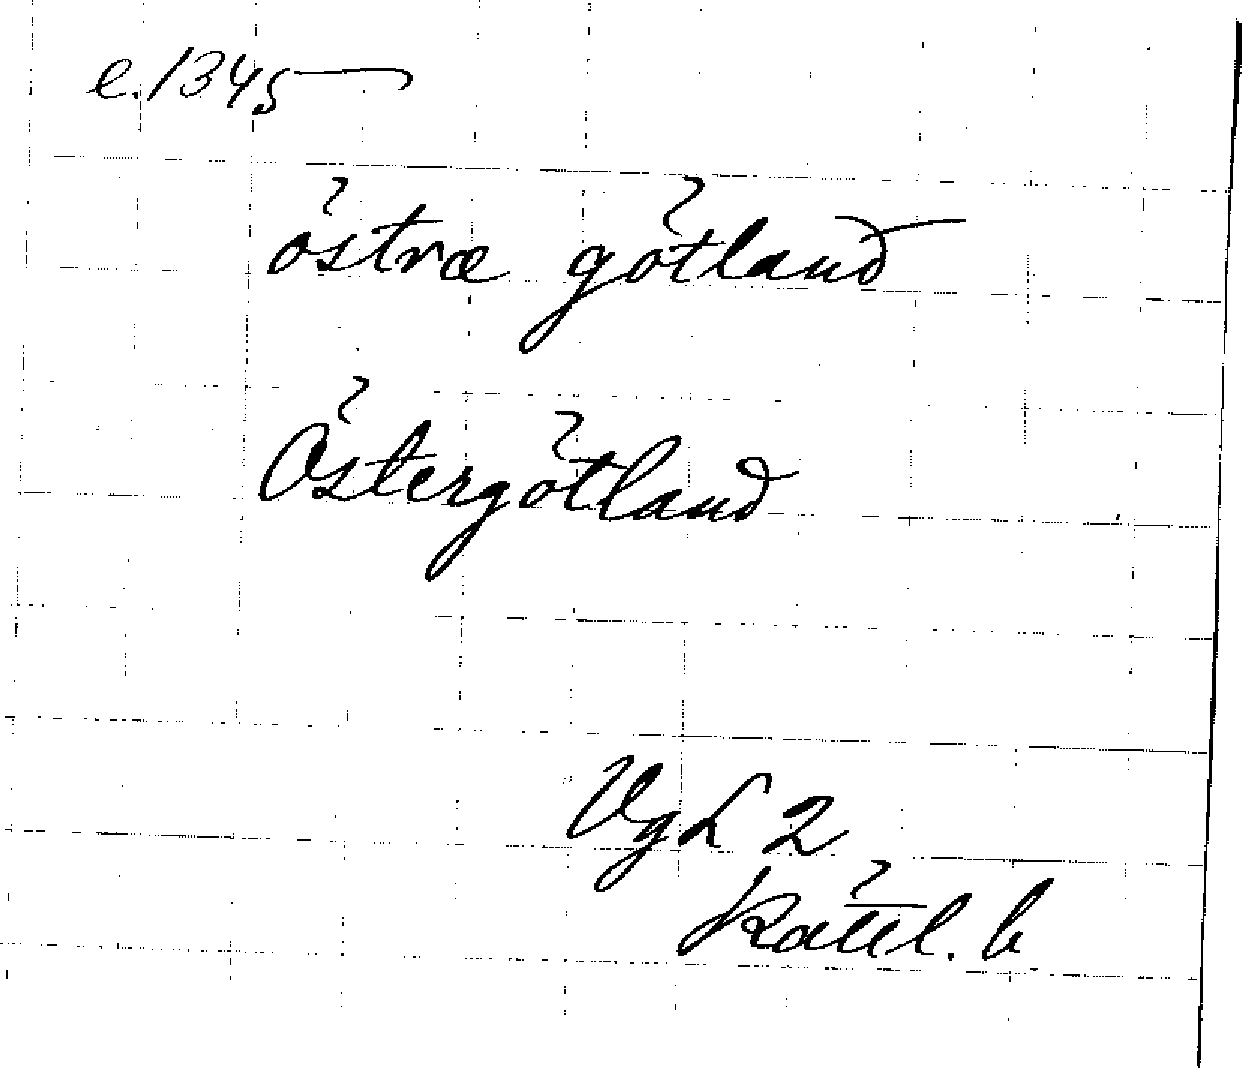 e. 1345
östræ götland
Östergötland
VgL 2
Rättl. b